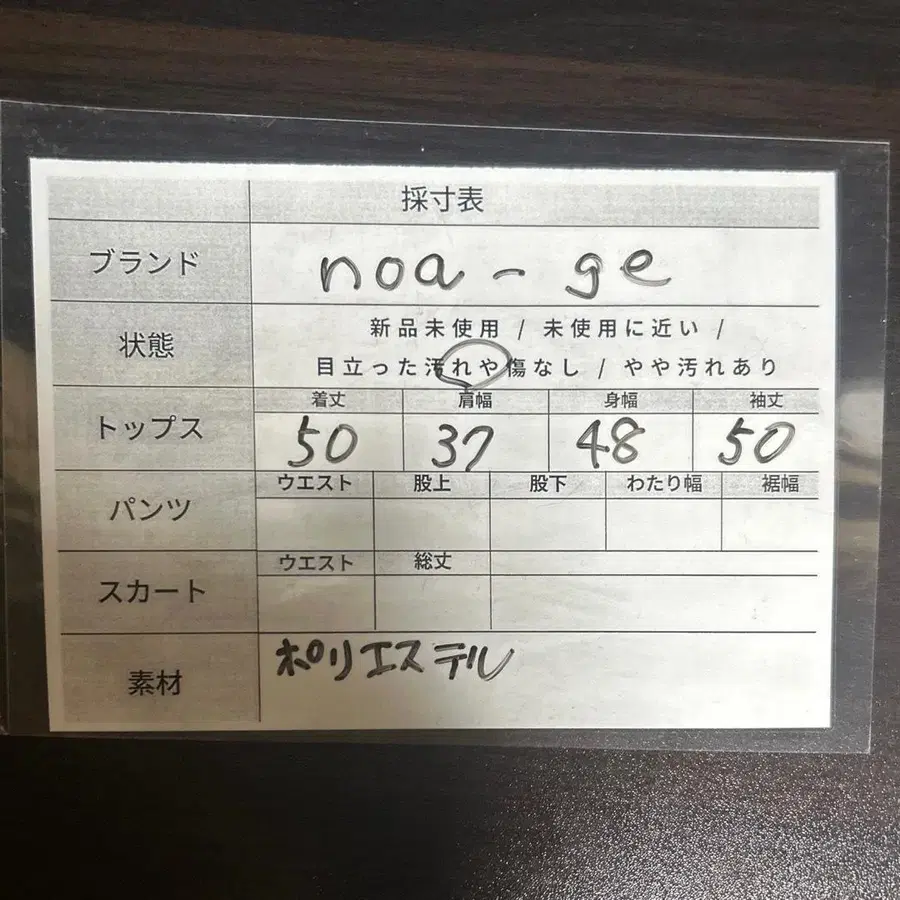 採寸表
ブランド noa - ge
状態 新品未使用 / 未使用に近い /
目立った汚れや傷なし / やや汚れあり
トップス 着丈 肩幅 身幅 袖丈
50 37 48 50
パンツ ウエスト 股上 股下 わたり幅 裾幅
スカート ウエスト 総丈
素材 ポリエステル